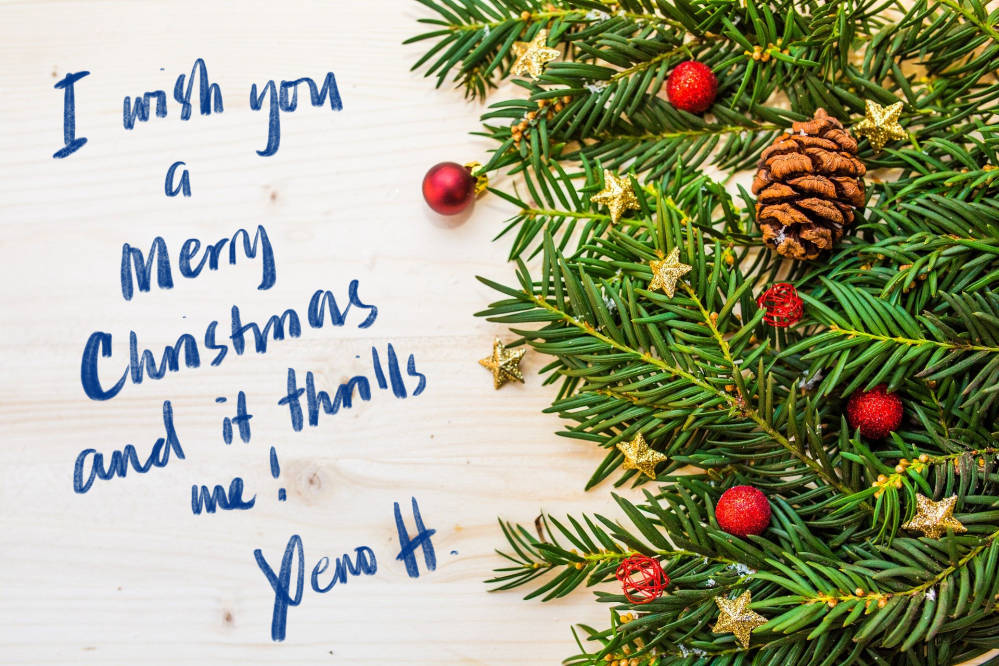 I wish you
a
Merry
Christmas
and it thrills
me!
Yeno H.